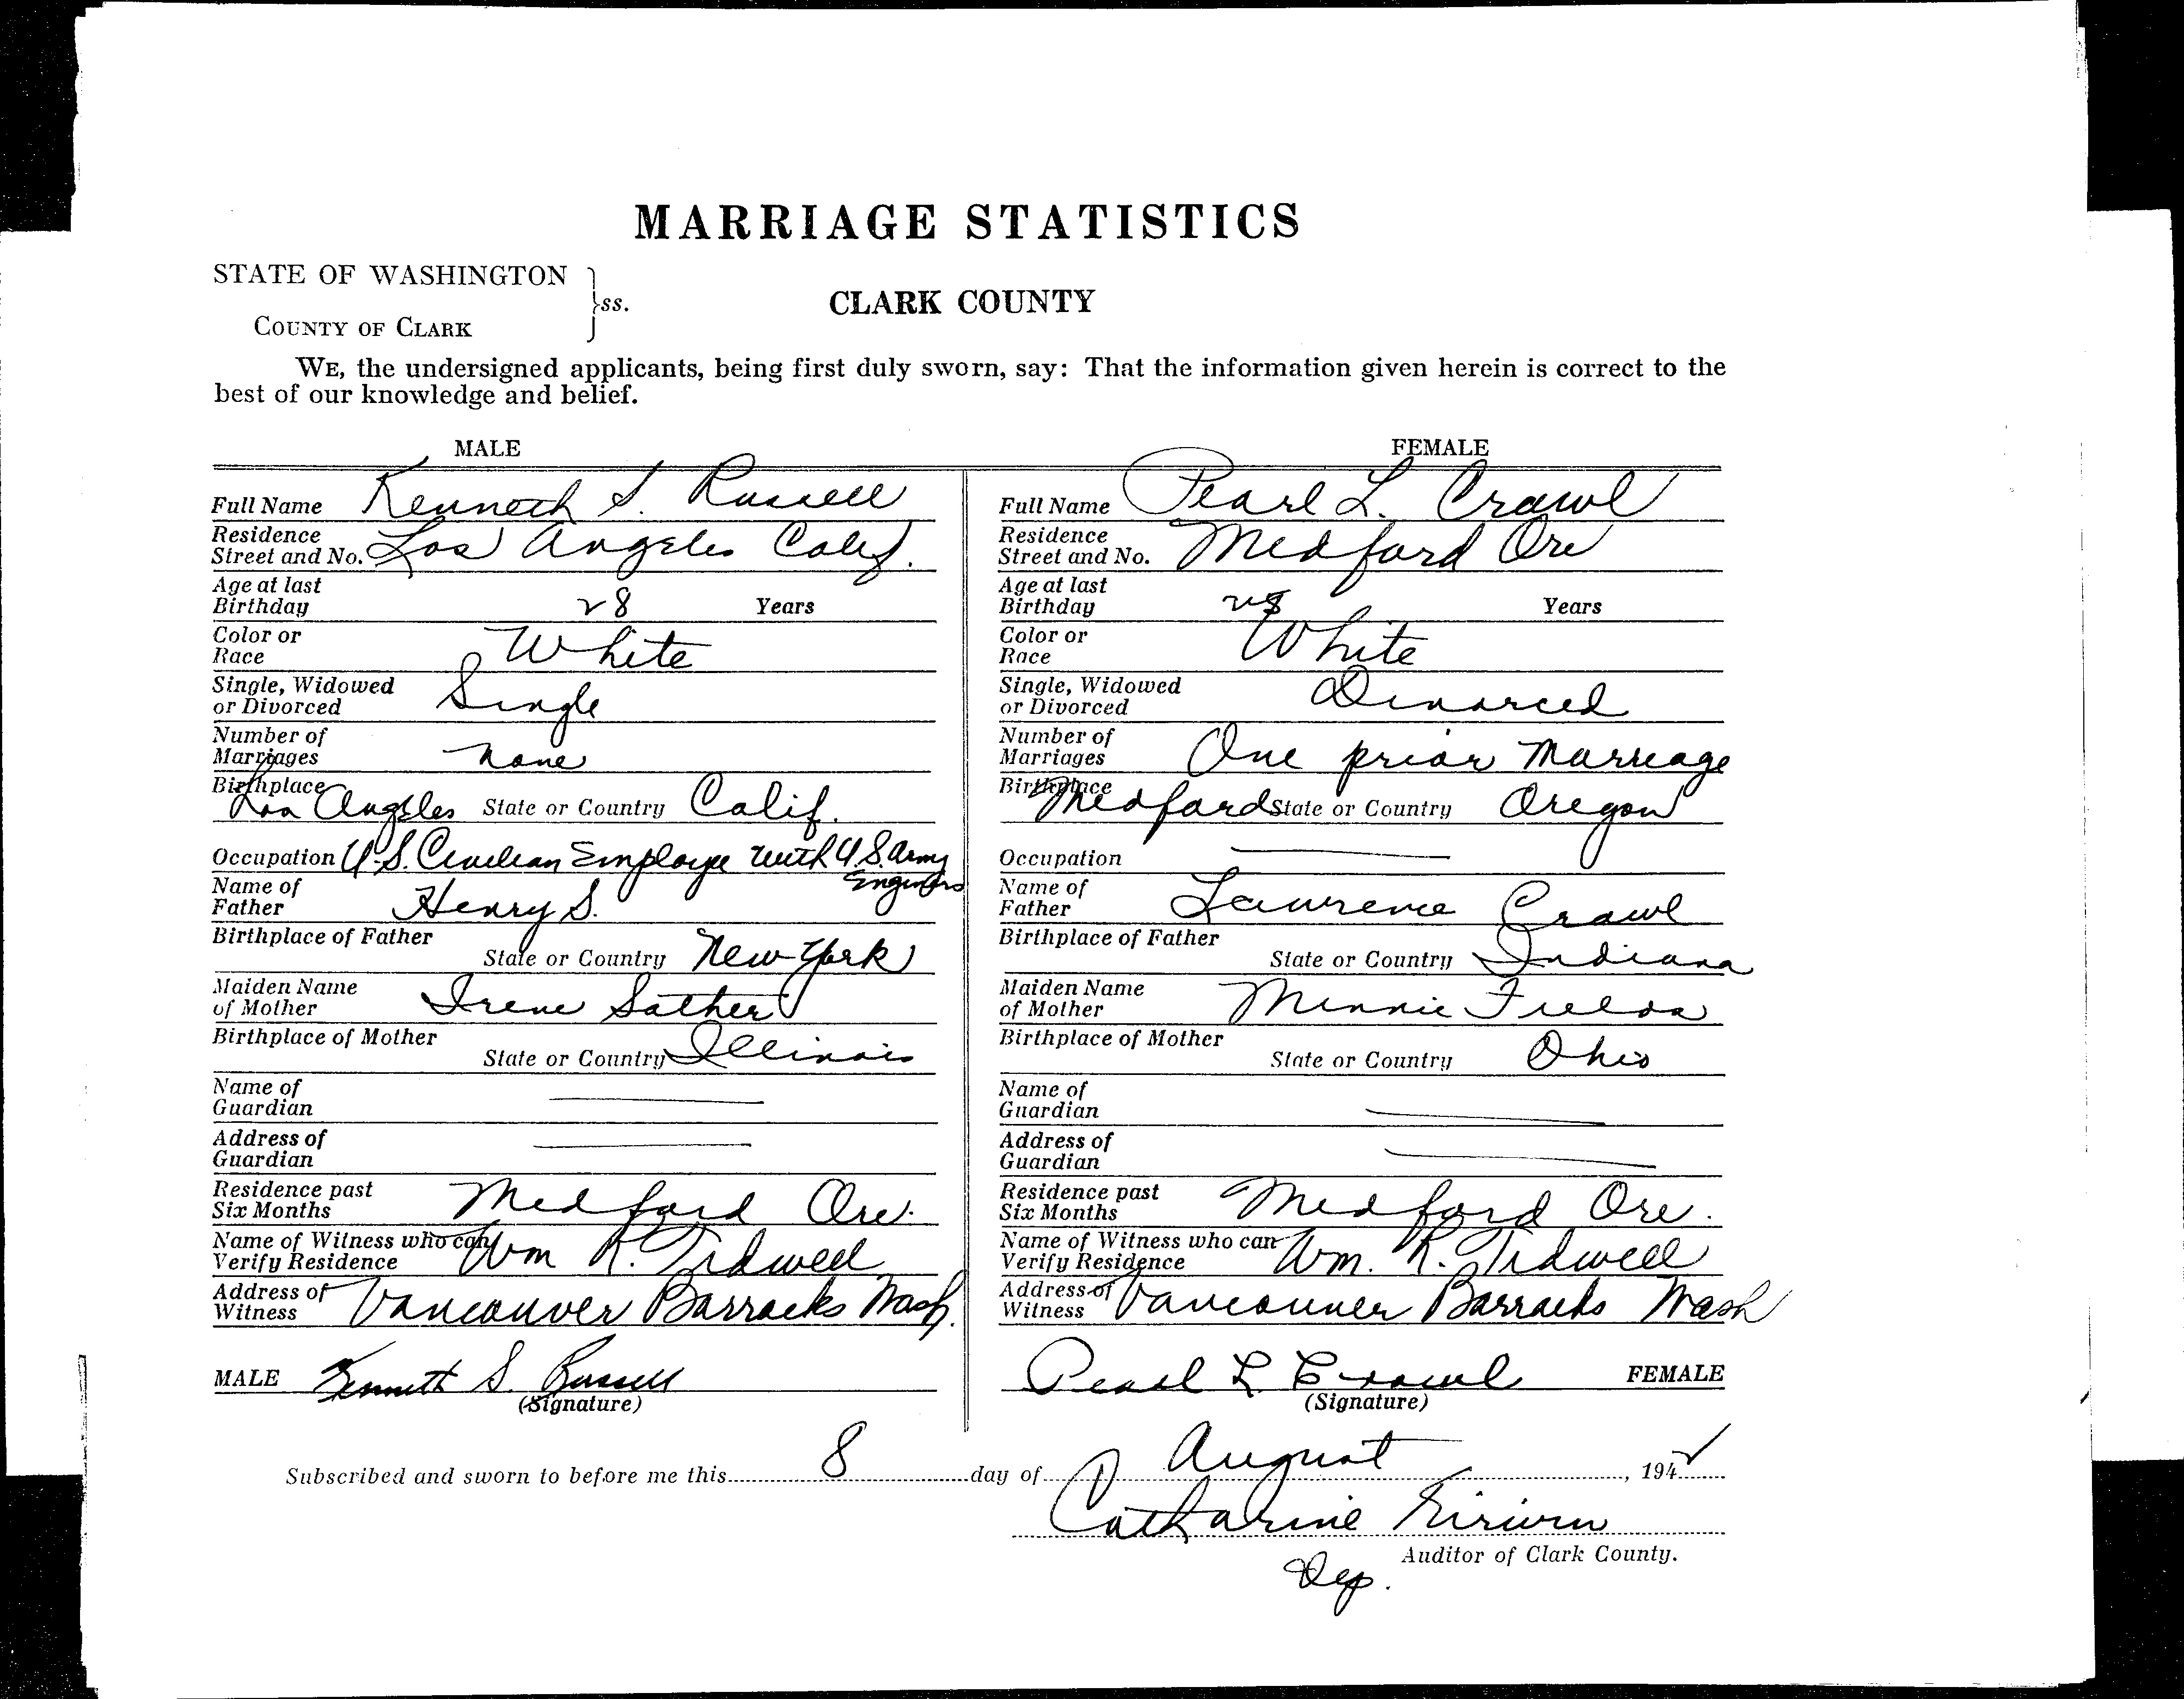 MARRIAGE STATISTICS
STATE OF WASHINGTON
ss.
CLARK COUNTY
COUNTY OF CLARK
WE, the undersigned applicants, being first duly sworn, say: That the information given herein is correct to the
best of our knowledge and belief.
MALE
Full Name Kenneth S. Russell
Residence
Street and No. Los Angeles Calif.
Age at last
Birthday 28 Years
Color or
Race White
Single, Widowed
or Divorced Single
Number of
Marriages none
Birthplace
Los Angeles State or Country Calif.
Occupation U.S. Civilian Employe with U.S. Army
Engineers
Name of
Father Henry S.
Birthplace of Father
State or Country New York
Maiden Name
of Mother Irene Sather
Birthplace of Mother
State or Country Illinois
Name of
Guardian
Address of
Guardian
Residence past
Six Months Medford Ore.
Name of Witness who can
Verify Residence Wm R. Tidwell
Address of
Witness Vancouver Barracks Wash.
MALE Kenneth S. Russell
(Signature)
FEMALE
Full Name Pearl L. Crawl
Residence
Street and No. Medford Ore
Age at last
Birthday 28 Years
Color or
Race White
Single, Widowed
or Divorced Divorced
Number of
Marriages One prior Marriage
Birthplace
Medford State or Country Oregon
Occupation
Name of
Father Lawrence Crawl
Birthplace of Father
State or Country Indiana
Maiden Name
of Mother Minnie Fields
Birthplace of Mother
State or Country Ohio
Name of
Guardian
Address of
Guardian
Residence past
Six Months Medford Ore.
Name of Witness who can
Verify Residence Wm. R. Tidwell
Address of
Witness Vancouver Barracks Wash
Pearl L Crawl FEMALE
(Signature)
Subscribed and sworn to before me this 8 day of August, 1942
Catharine
Auditor of Clark County.
Dep.